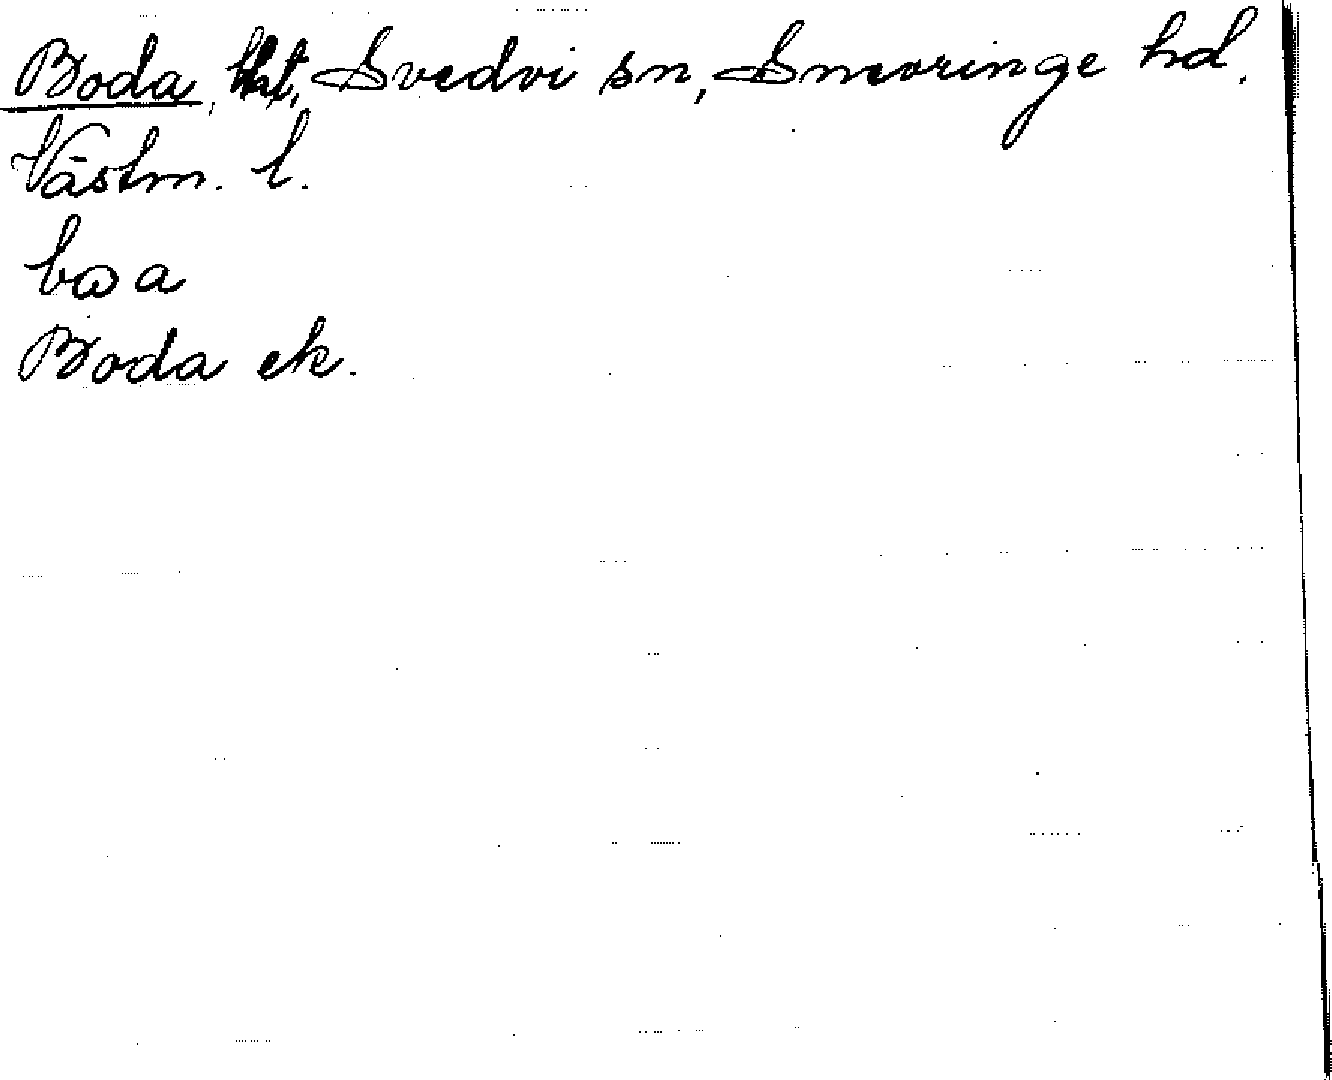 Boda, Svedvi sn, Snevringe hd,
Västm. l.
bωa
Boda ek.